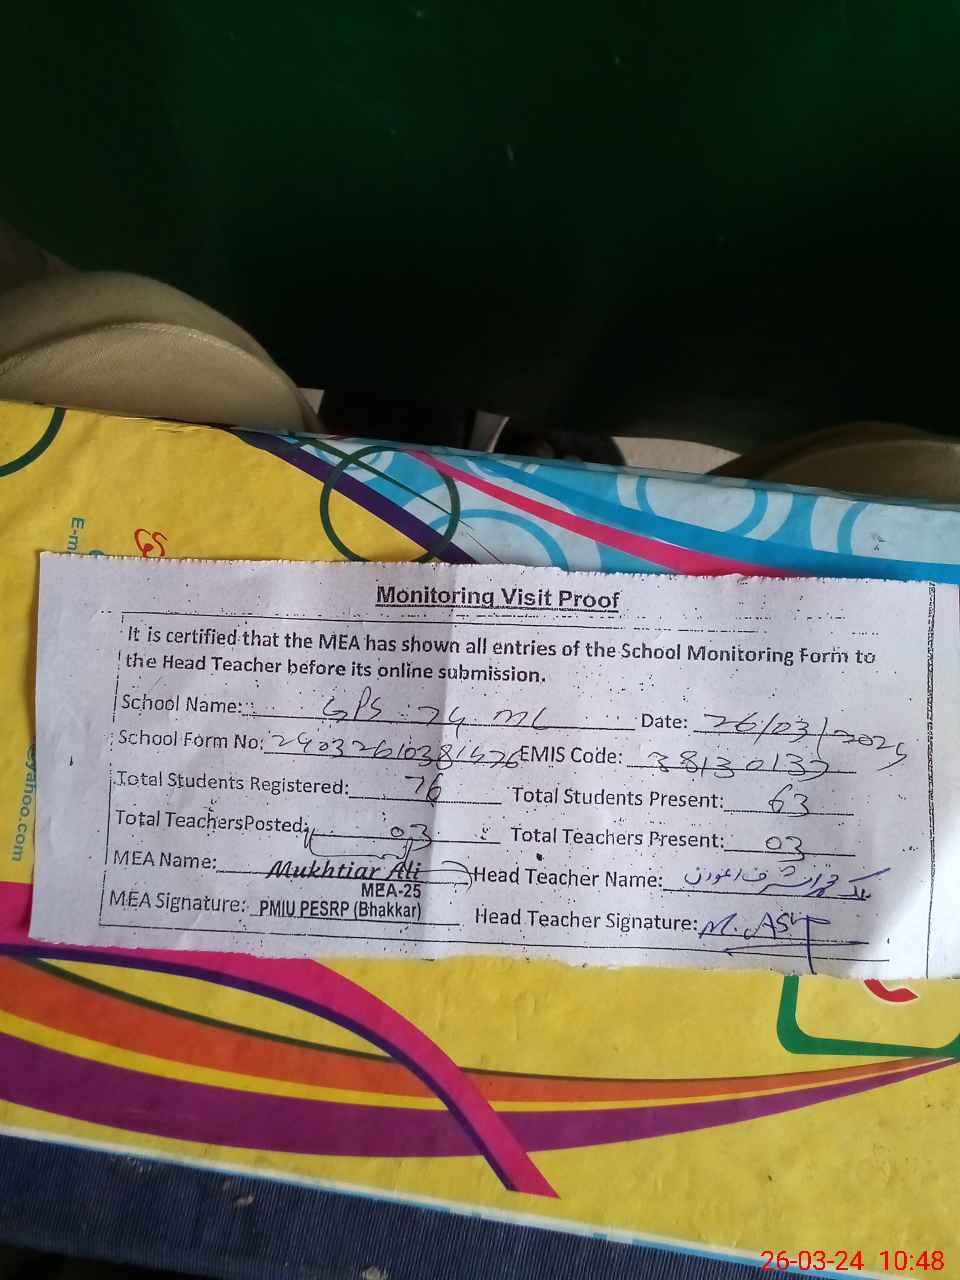 E-m
yahoo.com
Monitoring Visit Proof
It is certified that the MEA has shown all entries of the School Monitoring Form to
the Head Teacher before its online submission.
School Name: GPS 74 ML Date: 26/03/2024
School Form No: EMIS Code: 38130132
Total Students Registered: 76 Total Students Present: 63
Total TeachersPosted: 03 Total Teachers Present: 03
MEA Name: Mukhtiar Ali Head Teacher Name: ملک محمد اشرف اعوان
MEA-25
MEA Signature: PMIU PESRP (Bhakkar) Head Teacher Signature: M. ASF
26-03-24 10:48